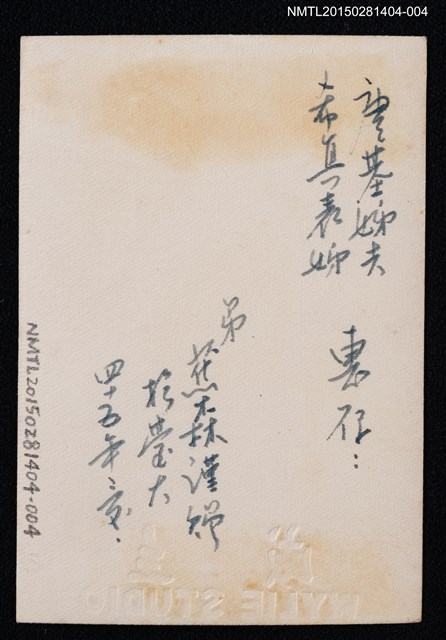 NMTL20150281404-004
豐基姊夫
希真表姊
惠存:
弟
蕉森謹贈
於臺大
四十五年夏.
NMTL20150281404-004
WYLIE STUDIO